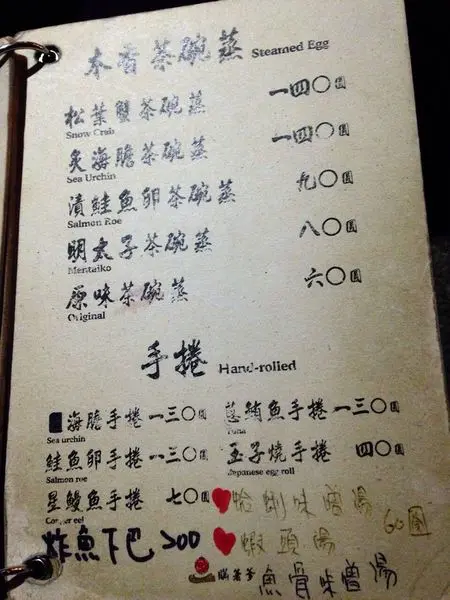 木香茶碗蒸 Steamed Egg
松葉蟹茶碗蒸 一四〇圓
Snow Crab
炙海膽茶碗蒸 一四〇圓
Sea Urchin
漬鮭魚卵茶碗蒸 九〇圓
Salmon Roe
明太子茶碗蒸 八〇圓
Mentaiko
原味茶碗蒸 六〇圓
Original
手捲 Hand-rolled
海膽手捲 一三〇圓 蔥鮪魚手捲 一三〇圓
Sea urchin Tuna
鮭魚卵手捲 一三〇圓 玉子燒手捲 四〇圓
Salmon roe Japanese egg roll
星鰻魚手捲 七〇圓 蛤蜊味噌湯 60圓
Conger eel
炸魚下巴 200 蝦頭湯
魚骨味噌湯